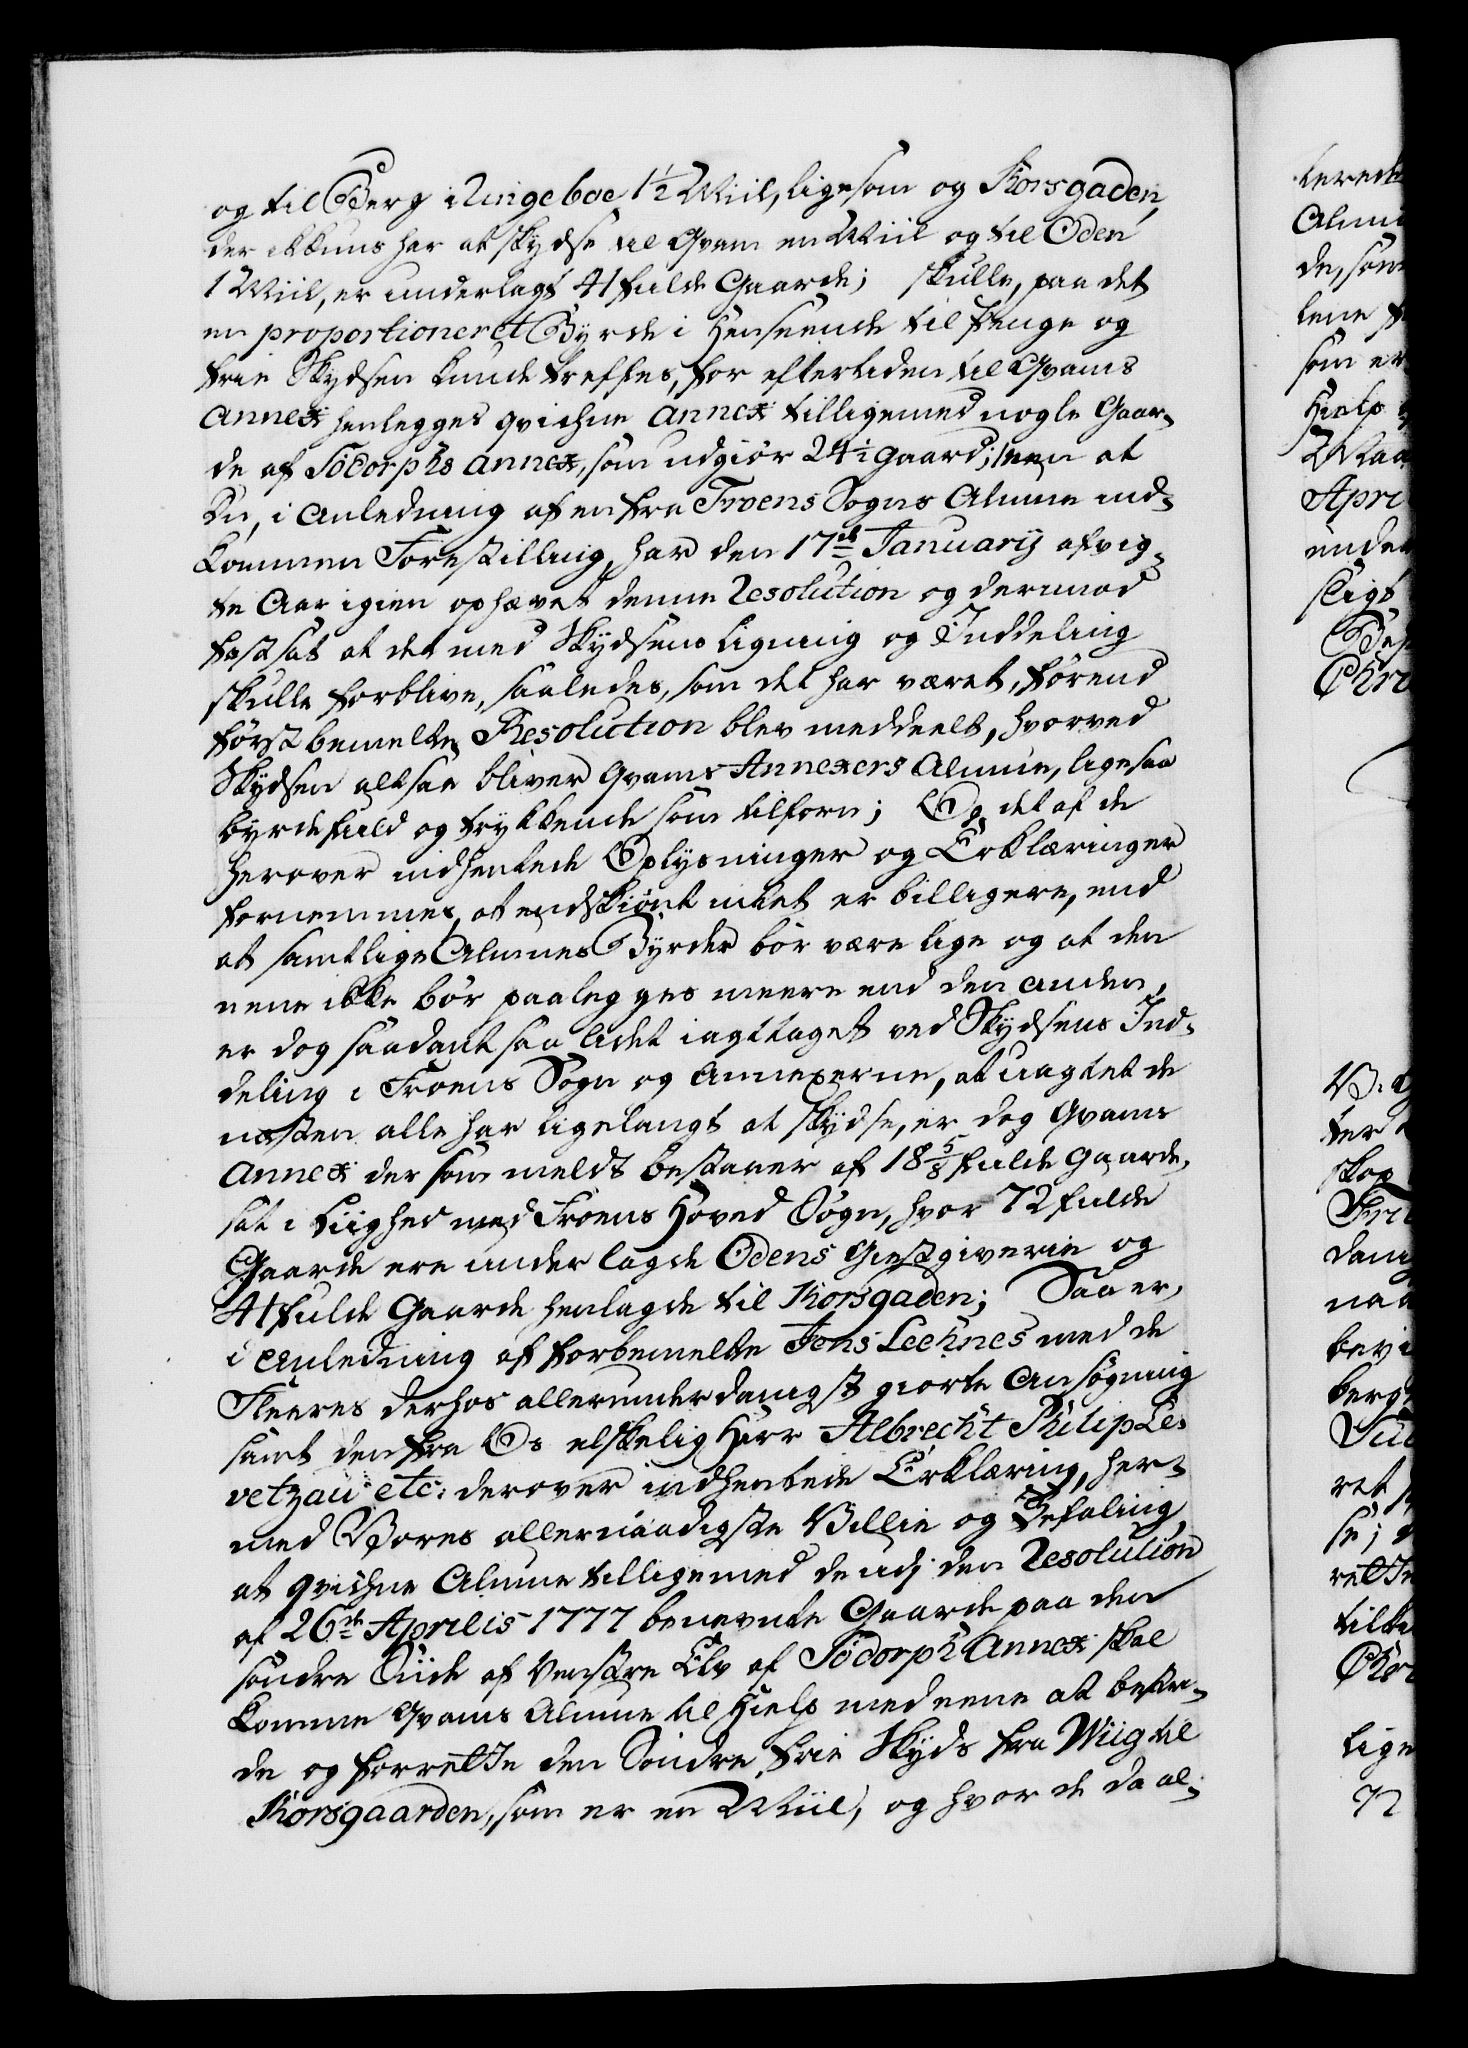 og til Berg i Ringeboe 1½ Miil, ligesom og Korsgaden,
der ikkuns har at skydse til Qvam en Miil og til Oden
1 Miil, er underlagt 41 fulde Gaarde; skulle, paa det
en proportioneret Byrde i Henseende til Penge og
frie Skydsen kunde treffes, for efterliden til Qvams
Annex henlegges qvichne Annex tilligemed nogle Gaar-
de af Södorphs Annex, som udgiör 24½ Gaard; men at
du, i Anledning af en fra Froens Sogns Almue ind-
kommen Forestilling, har den 17de Januarij afvig-
te Aar igien ophævet denne Resolution og dermod
fastsat at det med Skydsens Ligning og Inddeling
skulle forblive, saaledes, som det har været, förend
först bemelte Resolution blev meddeelt, hvorved
Skydsen altsaa bliver Qvams Annexers Almue, ligesaa
byrdefuld og trykkende som tilforn; Og det af de
herover indhentede Oplysninger og Erklæringer
fornemmes, at endskiönt intet er billigere, end
at samtlige Almues Byrder bör være lige og at den
eene ikke bör paalegges meere end den anden,
er dog saadant saa lidet iagttaget ved Skydsens Ind-
deling i Froens Sogn og Annexerne, at uagtet de
næsten alle har ligelangt at skydse, er dog Qvams
Annex der som meldt bestaaer af 18⅝ fulde Gaarde,
sat i Liighed med Froens Hoved Sogn, hvor 72 fulde
Gaarde ere underlagde Odens Giestgiverie og
41 fulde Gaarde henlagde til Korsgaden; Saa er,
i Anledning af forbemelte Jens Leehnes med de
Fleeres derhos allerunderdanigst giorte Ansögning
samt den fra Os elskelig Herr Albrecht Philip Le-
vetzau etc: derover indhentede Erklæring, her-
med Vores allernaadigste Villie og Befaling,
at qvichne Almue tilligemed de udj den Resolution
af 26de Aprilis 1777 benevnte Gaarde paa den
söndre Siide af Venstre Elv af Södorph Annex skal
komme Qvams Almue til Hielp med eene at befor-
de og forrette den Söndre frie Skyds fra Wiig til
Korsgaarden, som er en Miil, og hvor de da al-